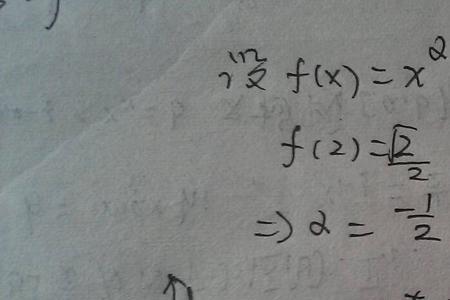 设 f(x) = x^α
f(2) = √2/2
⇒ α = -1/2